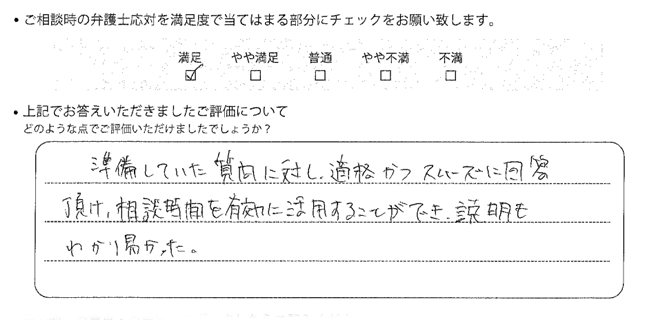 • ご相談時の弁護士応対を満足度で当てはまる部分にチェックをお願い致します。
満足 やや満足 普通 やや不満 不満
☑ □ □ □ □
• 上記でお答えいただきましたご評価について
どのような点でご評価いただけましたでしょうか？
準備していた質問に対し、適格かつスムーズに回答
頂け、相談時間を有効に活用することができ、説明も
わかり易かった。